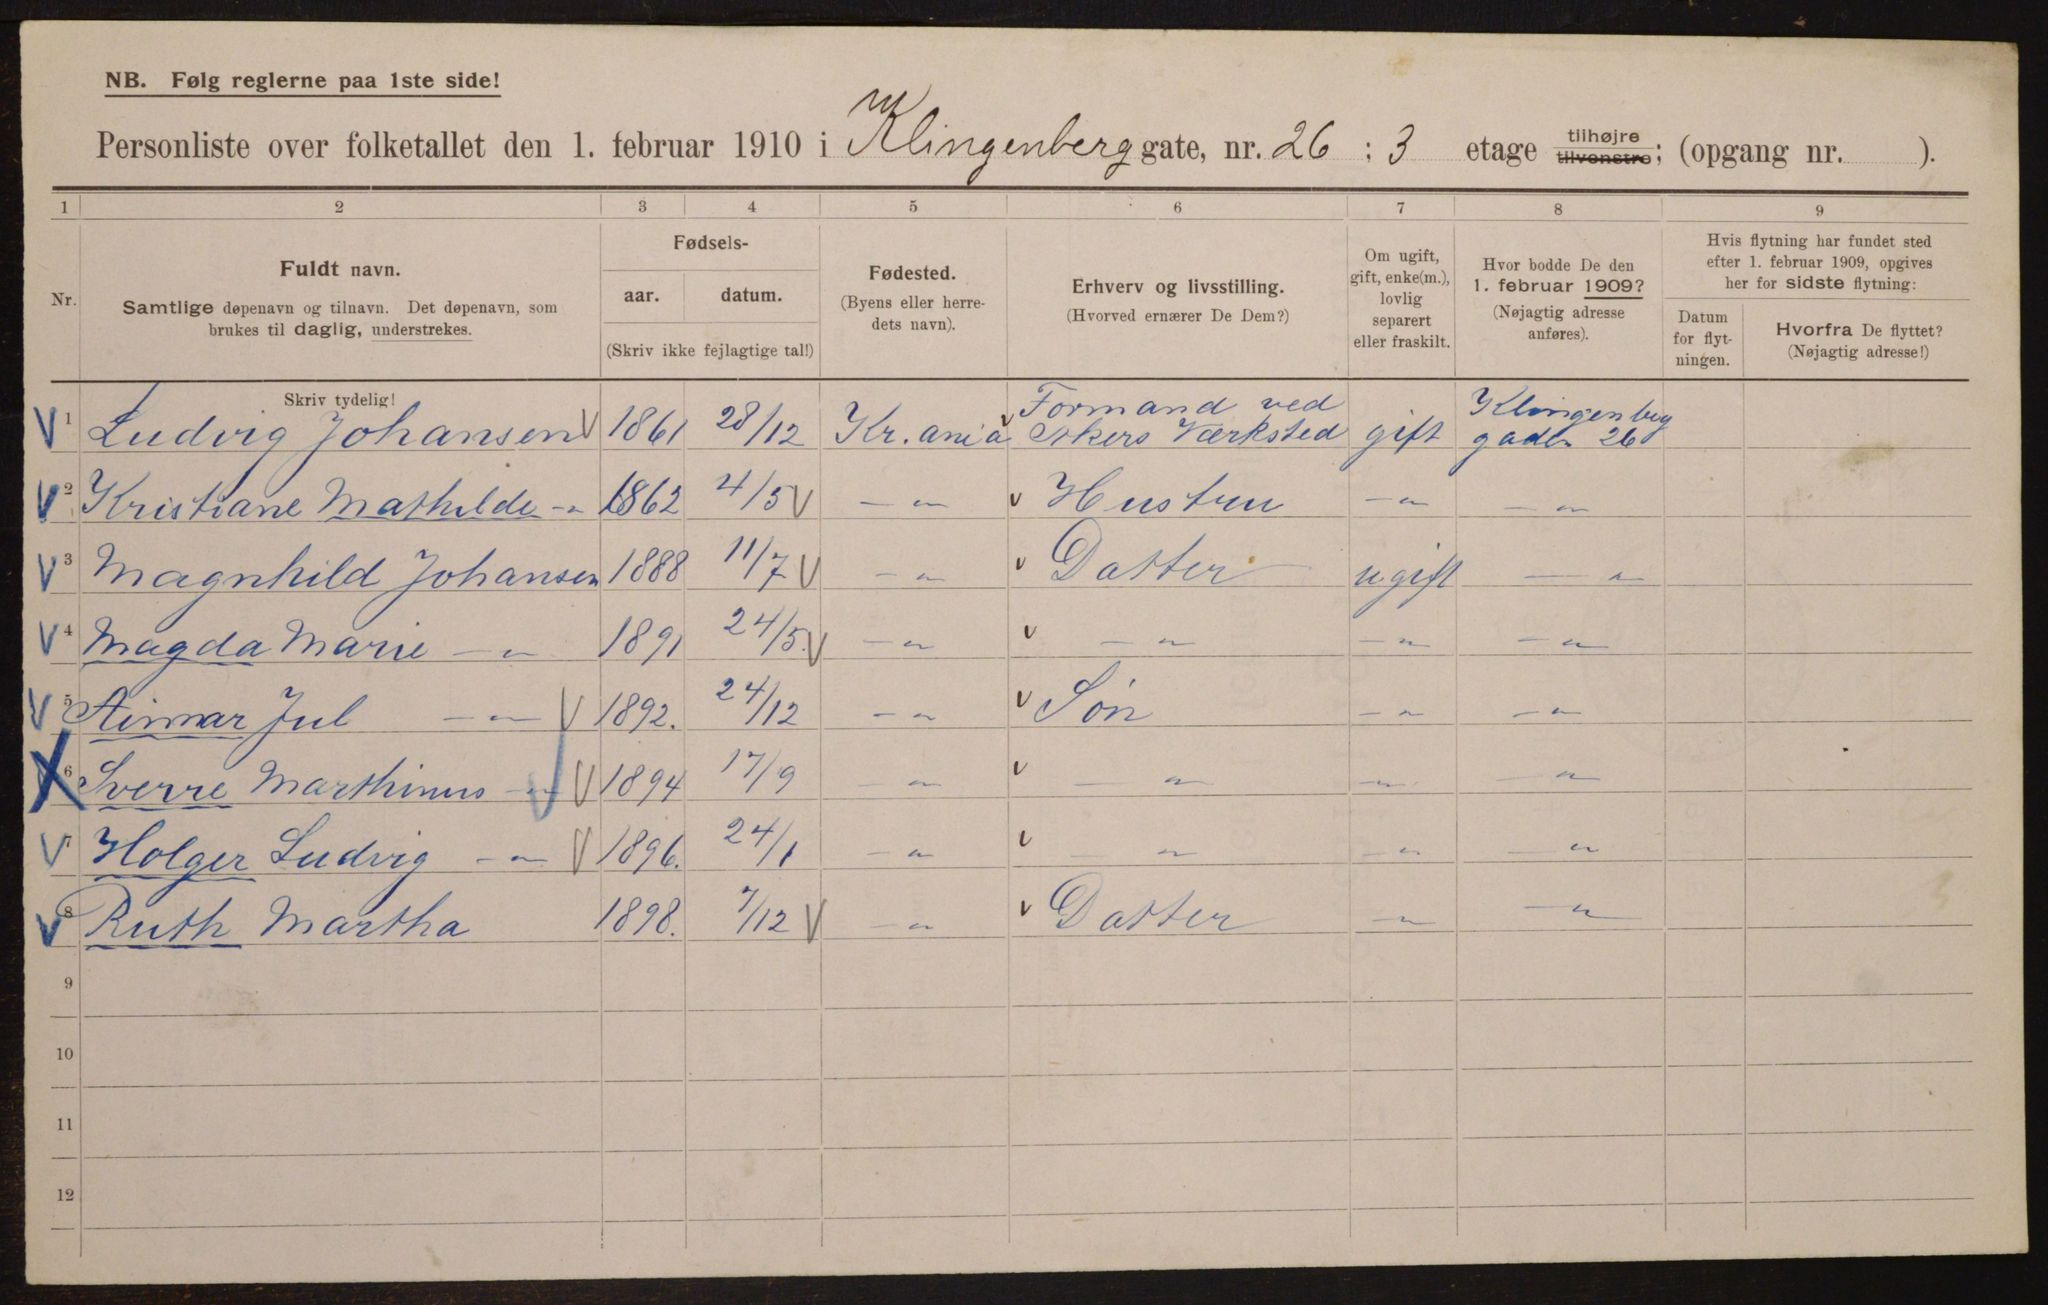 NB. Følg reglerne paa 1ste side!
Personliste over folketallet den 1. februar 1910 i Klingenberg gate, nr. 26 ; 3 etage tilhøjre tilvenstre; (opgang nr. ).
1 2 3 4 5 6 7 8 9
Nr.
Fuldt navn.
Samtlige døpenavn og tilnavn. Det døpenavn, som
brukes til daglig, understrekes.
Fødsels-
aar. datum.
(Skriv ikke fejlagtige tal!)
Fødested.
(Byens eller herre-
dets navn).
Erhverv og livsstilling.
(Hvorved ernærer De Dem?)
Om ugift,
gift, enke(m.),
lovlig
separert
eller fraskilt.
Hvor bodde De den
1. februar 1909?
(Nøjagtig adresse
anføres).
Hvis flytning har fundet sted
efter 1. februar 1909, opgives
her for sidste flytning:
Datum
for flyt-
ningen.
Hvorfra De flyttet?
(Nøjagtig adresse!)
Skriv tydelig!
V 1 Ludvig Johansen V 1861 28/12 Kr.ania v Formand ved Akers Værksted gift Klingenbeg gaden 26
V 2 Kristiane Mathilde –"– 1862 4/5 V –"– v Hustru –"– –"–
V 3 Magnhild Johansen 1888 11/7 V –"– v Datter ugift –"–
V 4 Magda Marie –"– 1891 24/5. V –"– v –"– –"– –"–
V 5 Aimar Jul –"– V 1892. 24/12 –"– v Søn –"– –"–
X 6 Sverre Marthinus –"– V V 1894 17/9 –"– v –"– –"– –"–
V 7 Holger Ludvig –"– V 1896. 24/1 –"– v –"– –"– –"–
V 8 Ruth Martha 1898. 7/12 V –"– v Datter –"– –"–
9
10
11
12